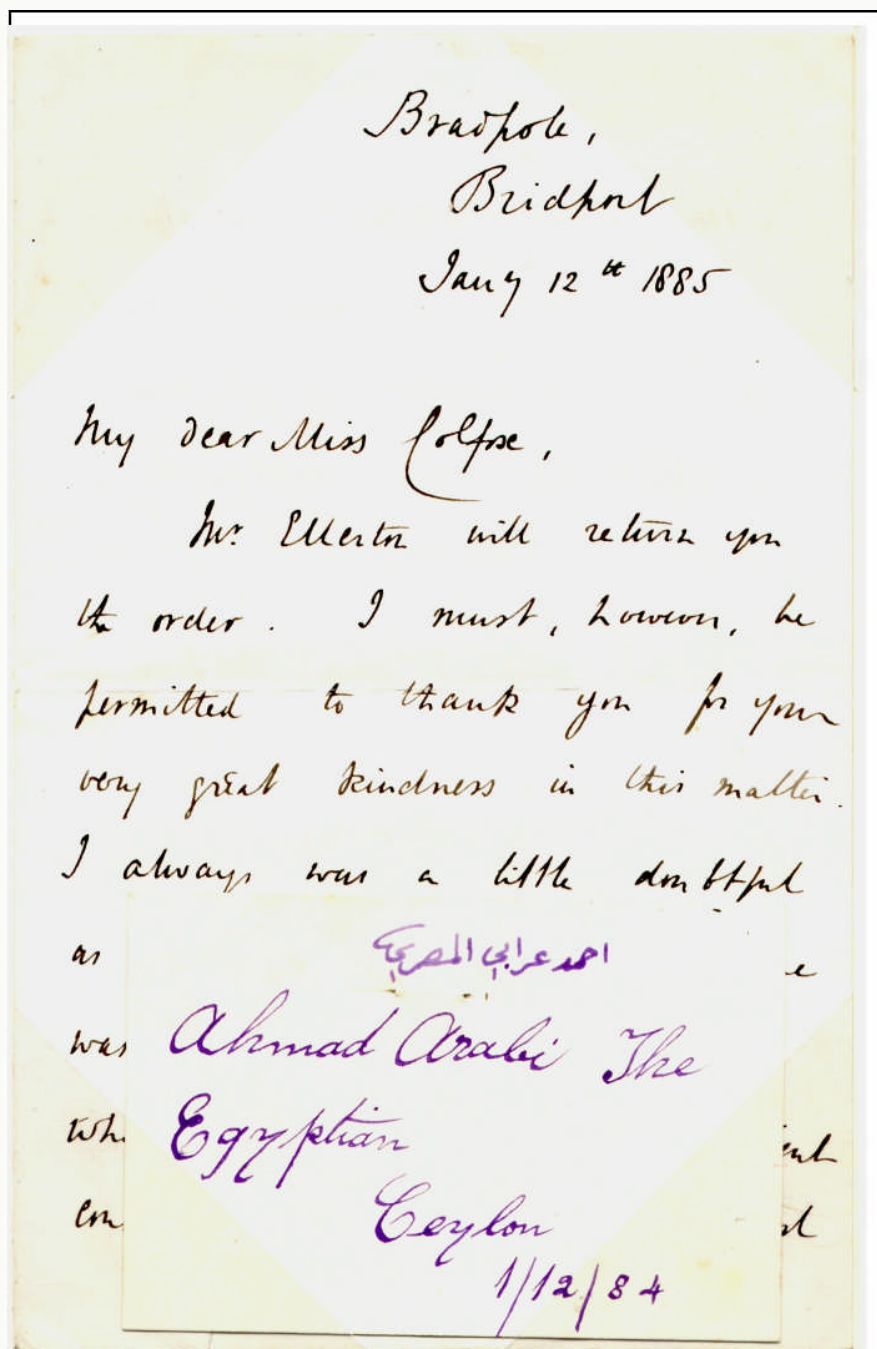 Bradpole,
Bridport
Jany 12th 1885
My dear Miss Colfox,
Mr. Ellerton will return you
the order. I must, however, be
permitted to thank you for your
very great kindness in this matter.
I always was a little doubtful
as
was
احمد عرابي المصري
Ahmad Arabi The
Egyptian
Ceylon
1/12/84